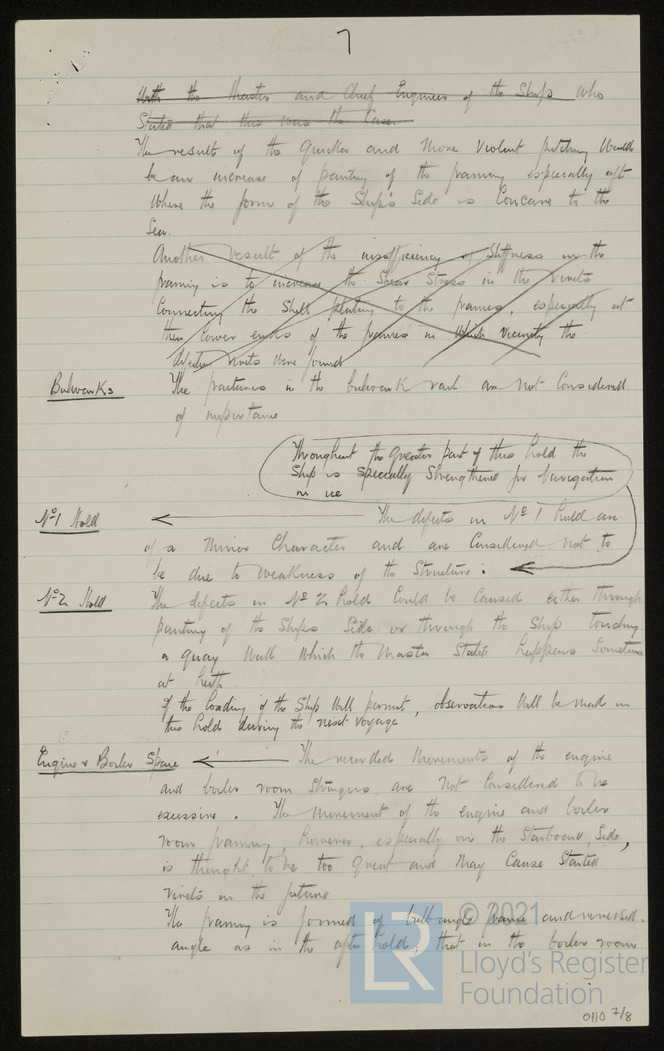 7
With the Master and Chief Engineer of the Ship who
Stated that this was the Case.
The result of the Quicker and More Violent pitching would
be an increase of panting of the framing especially aft
where the form of the Ship's Side is Concave to the
Sea.
Another result of the insufficiency of Stiffness in the
framing is to increase the Shear Stress in the rivets
Connecting the Shell plating to the frames, especially at
their lower ends of the frames in which vicinity the
defective rivets were found
Bulwarks
The fractures in the bulwark rail are not Considered
of importance
Throughout the greater part of this hold the
Ship is specially Strengthened for Navigation
in ice
No 1 Hold
The defects in No 1 hold are
of a Minor Character and are Considered not to
be due to weakness of the Structure:
No 2 Hold
The defects in No 2 hold Could be Caused either through
panting of the Ships Side or through the Ship touching
a quay Wall which the Master States happens Sometimes
at Leith.
If the loading of the Ship will permit, observations will be made in
this hold during the next voyage
Engine & Boiler Space
The recorded Movements of the engine
and boiler room Stringers are not Considered to be
excessive. The Movement of the engine and boiler
room framing, however, especially on the Starboard Side,
is thought to be too great and May Cause Started
rivets in the future
The framing is formed of bulb angle frame and reversed
angle as in the after hold, that in the boiler room
LR
© 2021
Lloyd's Register
Foundation
0110 7/8